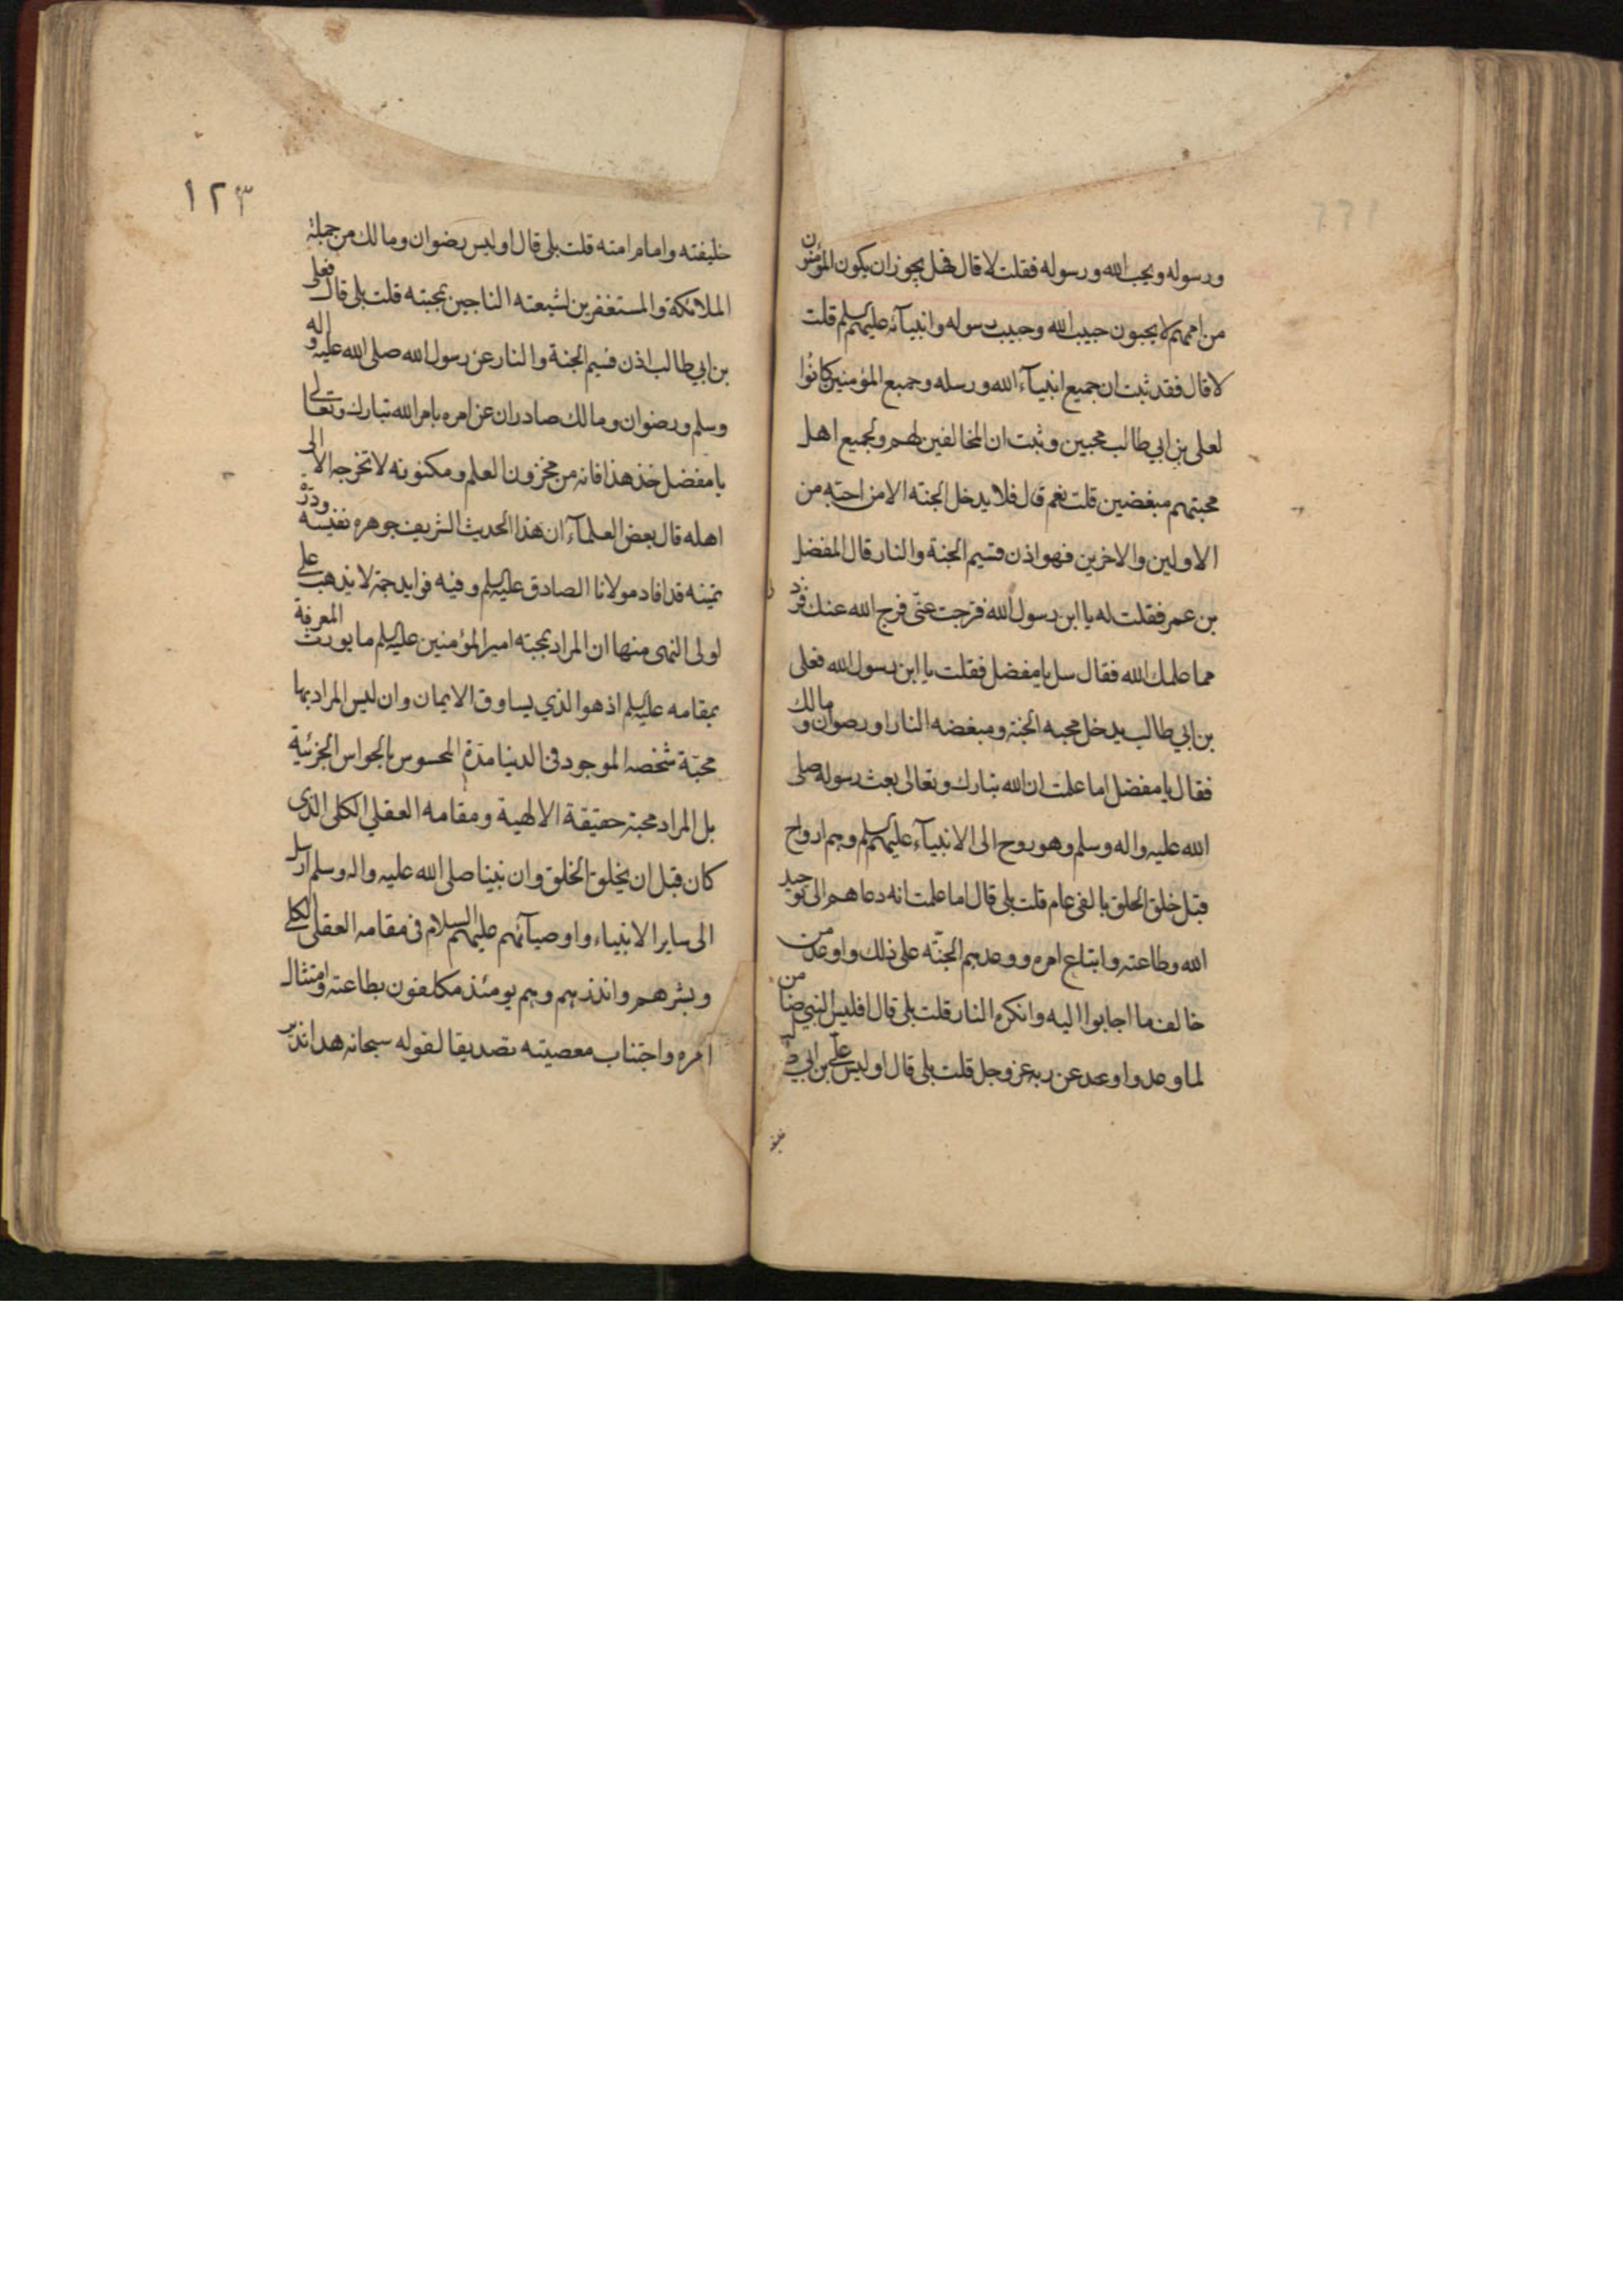 ورسوله ويحب الله ورسوله فقلت لا قال فهل يجوز ان يكون المؤمنون
من اممهم لا يحبون حبيب الله وحبيب رسوله وانبيآئه عليهم السلم قلت
لا قال فقد ثبت ان جميع انبيآء الله ورسله وجميع المؤمنين كانوا
لعلى بن ابي طالب محبين وثبت ان المخالفين لهم ولجميع اهل
محبتهم مبغضين قلت نعم قال فلا يدخل الجنة الا من احبه من
الاولين والاخرين فهو اذن قسيم الجنة والنار قال المفضل
بن عمر فقلت له يا ابن رسول الله فرجت عنّى فرج الله عنك فزد
مما علمك الله فقال سل يا مفضل فقلت يا ابن رسول الله فعلى
بن ابي طالب يدخل محبه الجنة ومبغضه النار او رضوان و مالك
فقال يا مفضل اما علمت ان الله تبارك وتعالى بعث رسوله صلى
الله عليه واله وسلم وهو روح الى الانبيآء عليهم السلم وهم ارواح
قبل خلق الخلق بالفى عام قلت بلى قال اما علمت انه دعاهم الى توحيد
الله وطاعته واتباع امره ووعدهم الجنّة على ذلك واوعد من
خالف ما اجابوا اليه وانكره النار قلت بلى قال افليس النبي ضامن
لما وعد واوعد عن ربه عز وجل قلت بلى قال اوليس علي بن ابي طالب
١٢٣
خليفته وامام امته قلت بلى قال اوليس رضوان ومالك من جملة
الملائكة والمستغفرين لشيعته الناجين بمحبته قلت بلى قال فعلى
بن ابي طالب اذن قسيم الجنة والنار عن رسول الله صلى الله عليه واله
وسلم ورضوان ومالك صادران عن امره بامر الله تبارك وتعالى
يا مفضل خذ هذا فانه من مخزون العلم ومكنونه لا تخرجه الا الى
اهله قال بعض العلمآء ان هذا الحديث الشريف جوهره نفيسه ودرّة
ثمينه قد افاد مولانا الصادق عليه السلم وفيه فوايد جمة لا يذهب على
لولى النهى منها ان المراد بمحبته امير المؤمنين عليه السلم ما يورث المعرفة
بمقامه عليه السلم اذ هو الذي يساوق الايمان وان ليس المراد بها
محبّة شخصه الموجود فى الدنيا مدّة المحسوس بالحواس الجزئية
بل المراد محبة حقيقة الالهية ومقامه العقلي الكلى الذى
كان قبل ان يخلق الخلق وان نبينا صلى الله عليه واله وسلم ارسل
الى ساير الانبياء واوصيآئهم عليهم السلام فى مقامه العقلى الكلى
وبشرهم وانذرهم وهم يومئذ مكلفون بطاعته وامتثال
امره واجتناب معصيته تصديقا لقوله سبحانه هذا نذير